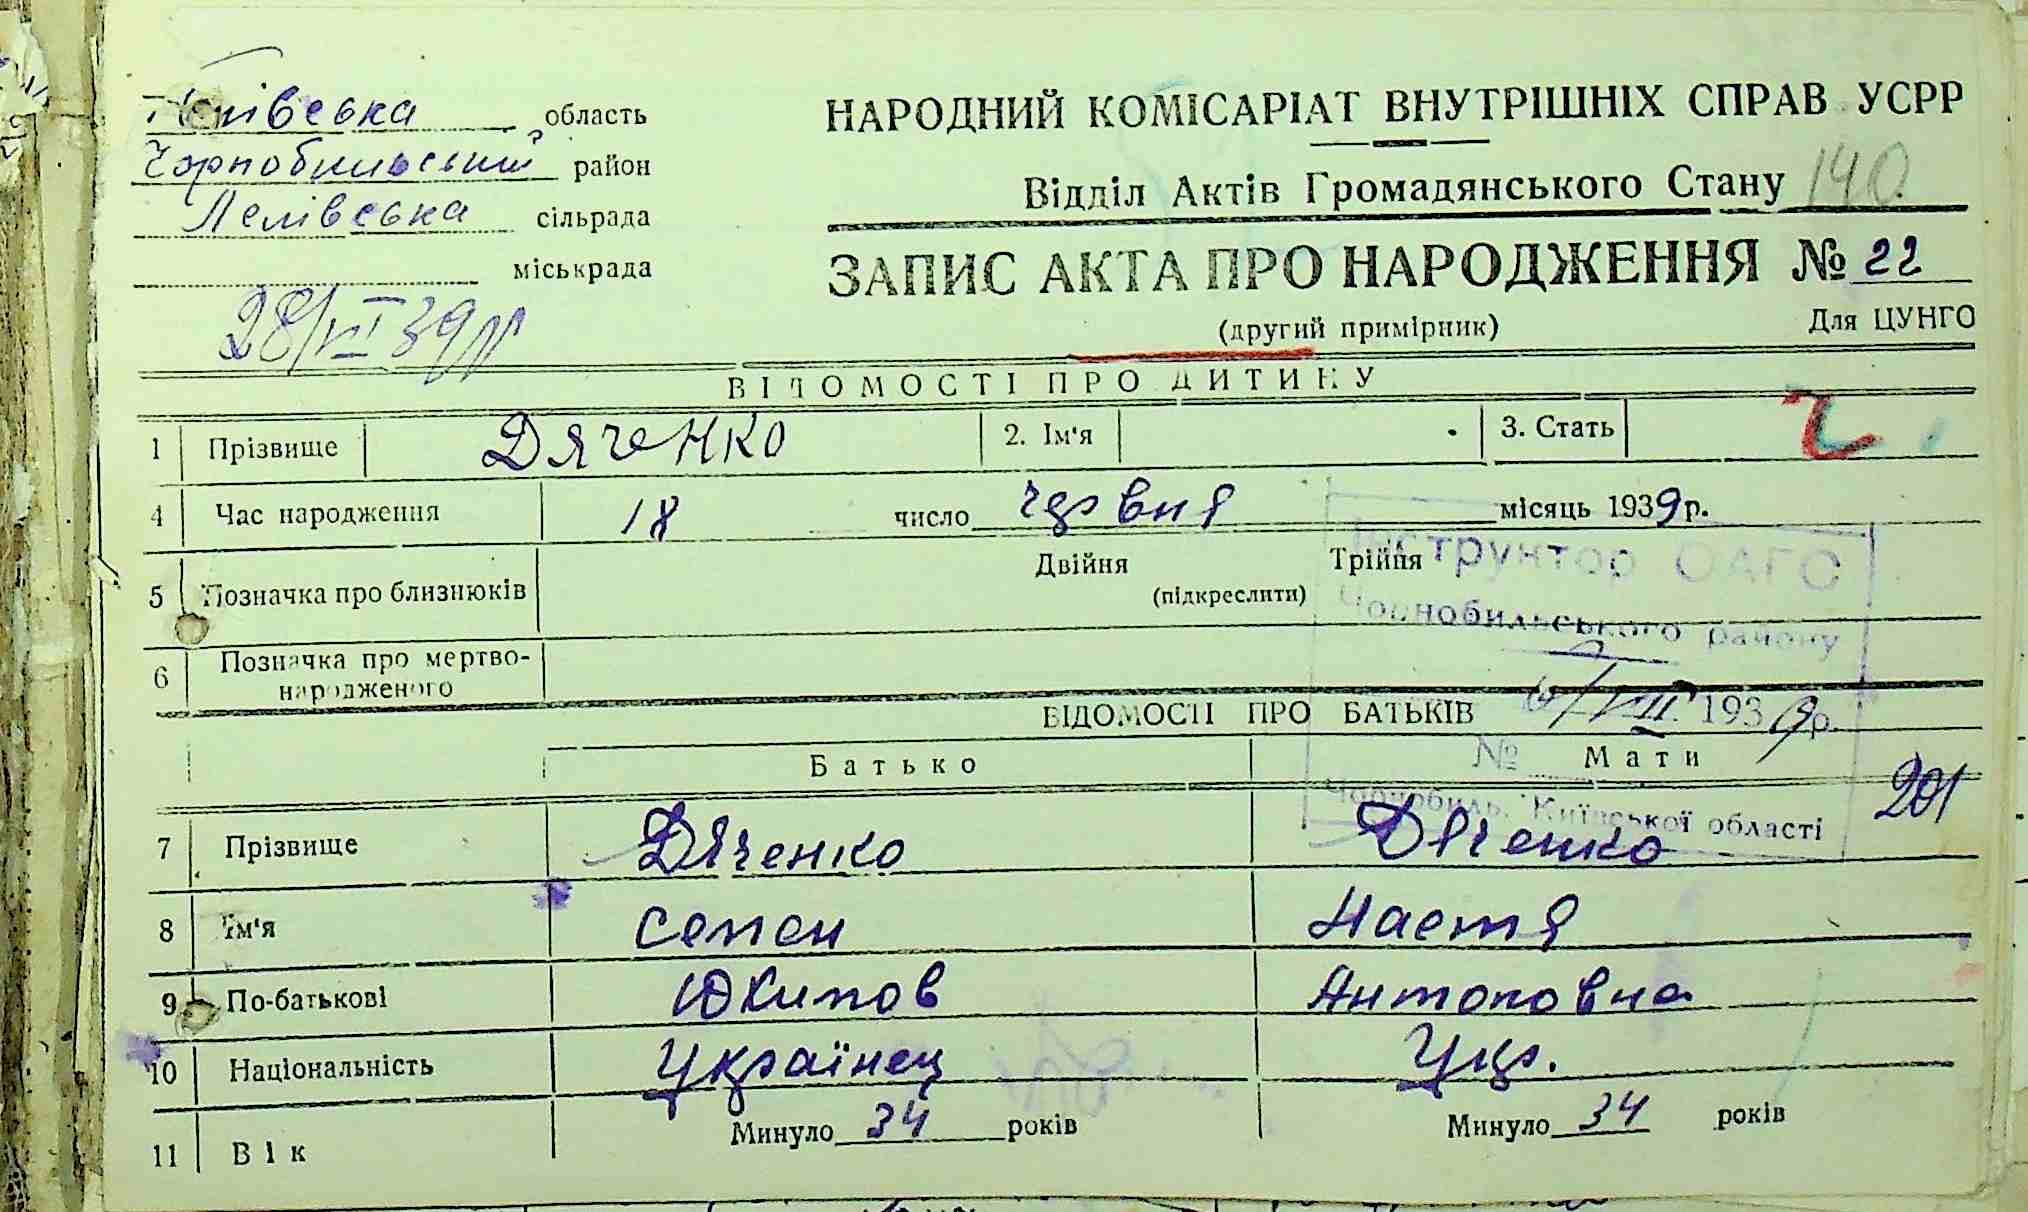 Київська область
Чорнобильський район
Лелівська сільрада
міськрада
28/VI 39 р
НАРОДНИЙ КОМІСАРІАТ ВНУТРІШНІХ СПРАВ УСРР
Відділ Актів Громадянського Стану 140
ЗАПИС АКТА ПРО НАРОДЖЕННЯ № 22
(другий примірник) Для ЦУНГО
ВІДОМОСТІ ПРО ДИТИНУ
1 Прізвище Дяченко 2. Ім'я 3. Стать Ч
4 Час народження 18 число червня місяць 1939 р.
5 Позначка про близнюків Двійня Трійня
(підкреслити)
6 Позначка про мертво-
народженого
Інструктор ОАГС
Чорнобильського району
VII 1939 р.
№
Чорнобиль, Київської області
ВІДОМОСТІ ПРО БАТЬКІВ
Батько Мати
201
7 Прізвище Дяченко Дяченко
8 Ім'я Семен Настя
9 По-батькові Юхимов Антоновна
10 Національність Українец Укр.
11 Вік Минуло 34 років Минуло 34 років